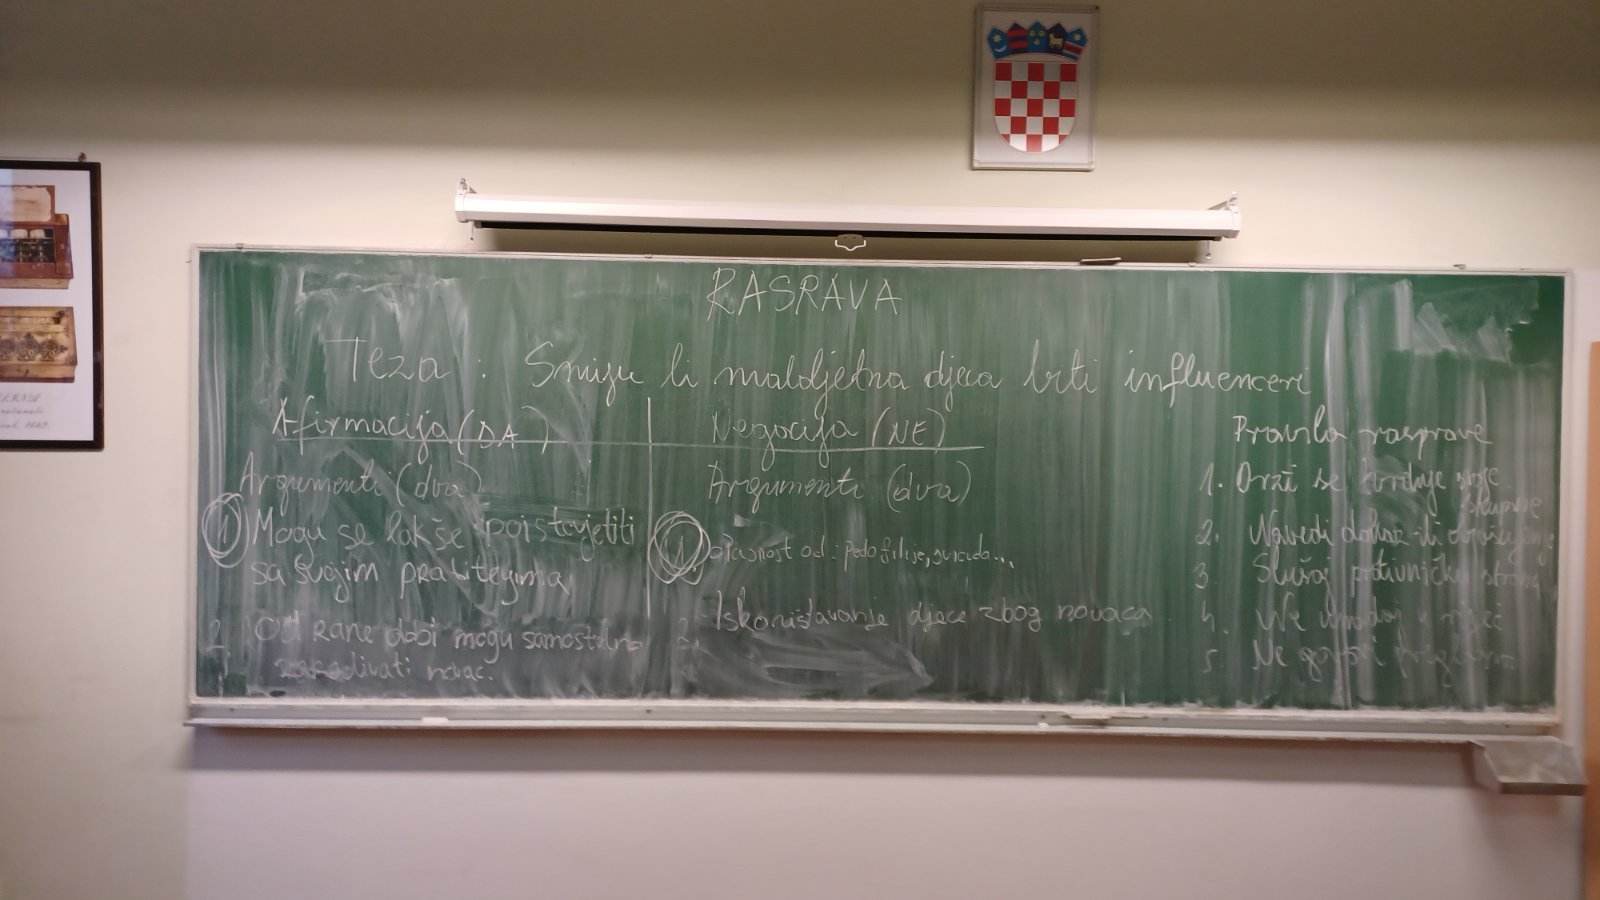 RASRAVA
Teza : Smiju li maloljetna djeca biti influenceri
Afirmacija (DA)
Argumenti (dva)
1. Mogu se lakše poistovjetiti
sa svojim pratiteljima
2. Od rane dobi mogu samostalno
zarađivati novac.
Negacija (NE)
Argumenti (dva)
1. opasnost od: pedofilije, suicida...
2. Iskorištavanje djece zbog novaca
Pravila rasprave
1. Drži se tvrdnje svoje
skupine
2. Navedi dokaz ili
3. Slušaj protivničku stranu
4. Ne upadaj u riječ
5. Ne govori preglasno